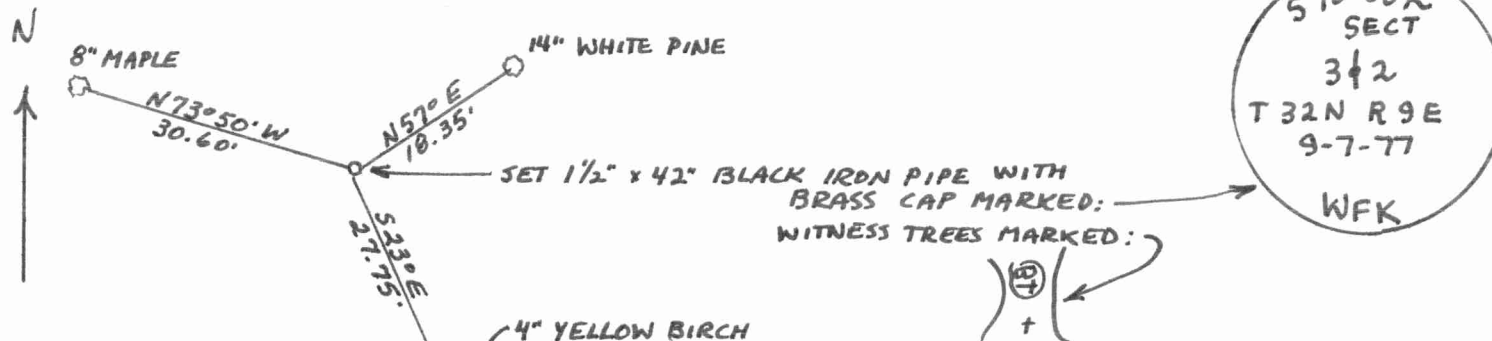 N
8" MAPLE
14" WHITE PINE
N73°50'W
30.60'
N57°E
18.35'
SET 1½" x 42" BLACK IRON PIPE WITH
BRASS CAP MARKED:
WITNESS TREES MARKED:
S23°E
27.75'
4" YELLOW BIRCH
BT
+
SECT
3 & 2
T 32N R 9E
9-7-77
WFK